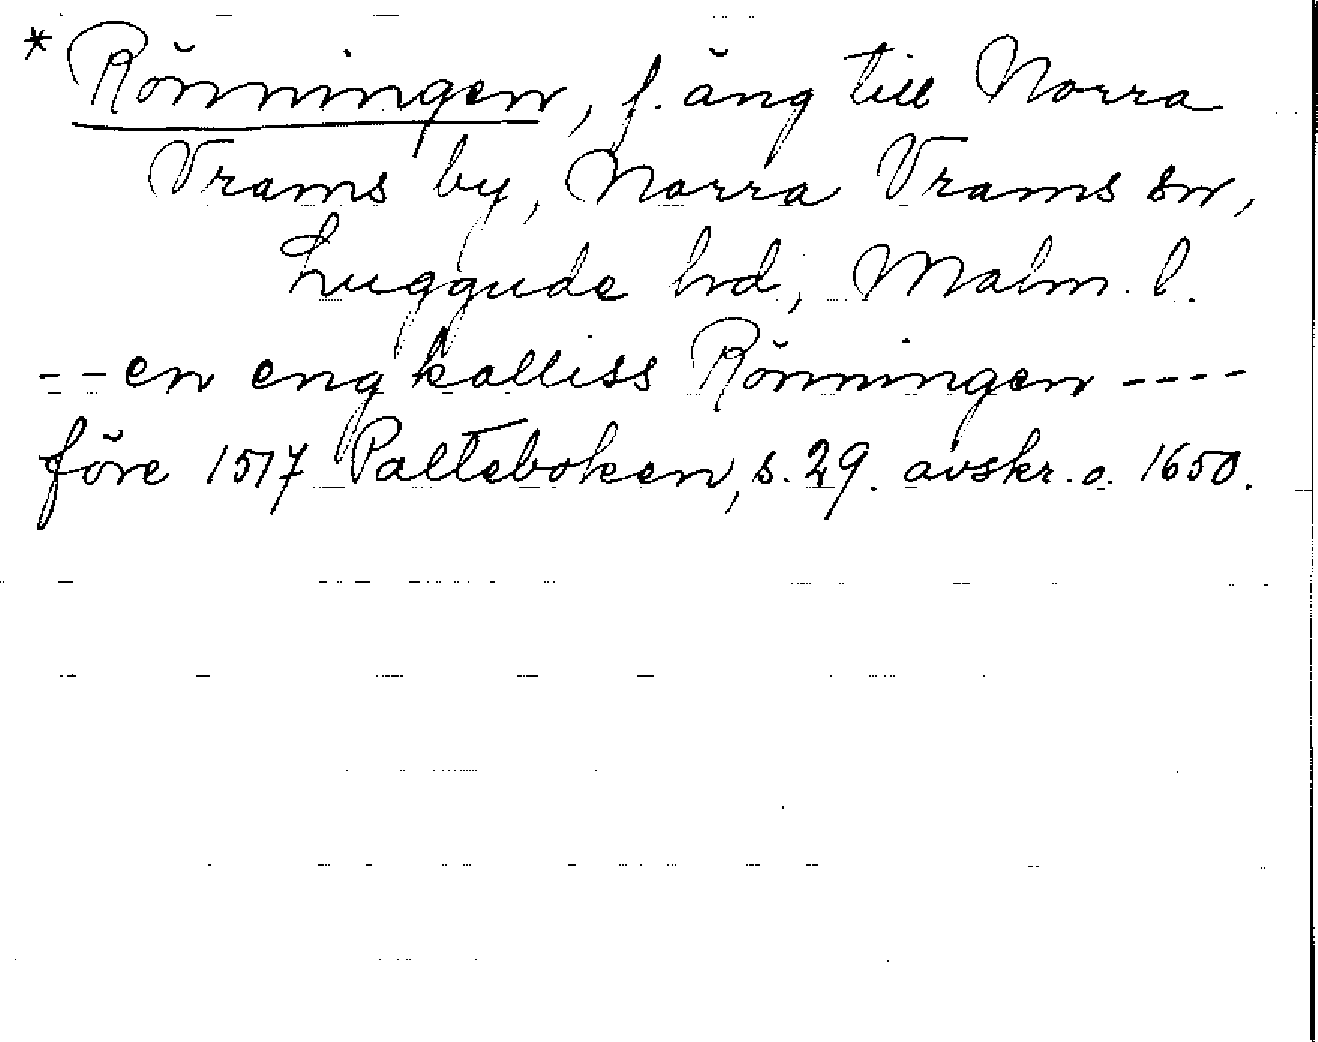 * Rönningen, f. äng till Norra
Vrams by, Norra Vrams sn,
Luggude hd, Malm. l.
--en eng kalliss Rönningen ----
före 1517 Palteboken, s. 29. avskr. o. 1650.